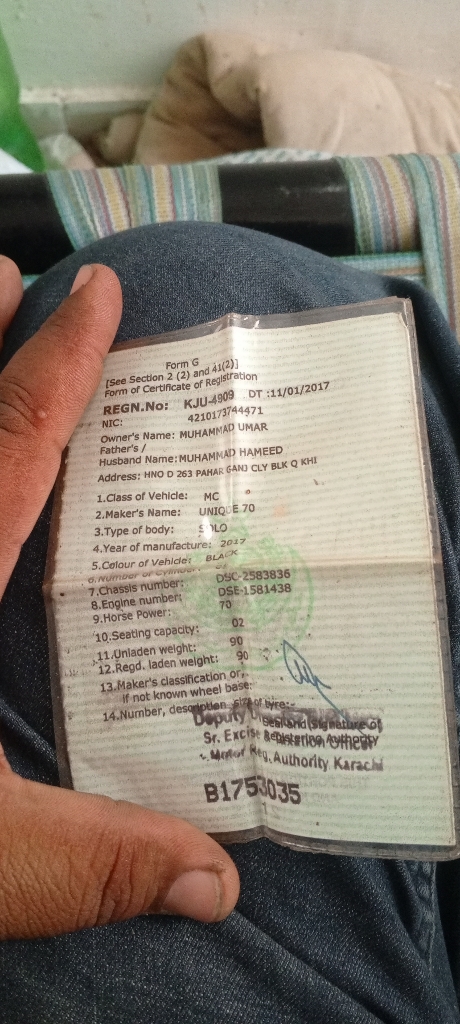 Form G
[See Section 2 (2) and 41(2)]
Form of Certificate of Registration
REGN.No: KJU-4909 DT :11/01/2017
NIC: 4210173744471
Owner's Name: MUHAMMAD UMAR
Father's /
Husband Name: MUHAMMAD HAMEED
Address: HNO D 263 PAHAR GANJ CLY BLK Q KHI
1.Class of Vehicle: MC
2.Maker's Name: UNIQUE 70
3.Type of body: SOLO
4.Year of manufacture: 2017
5.Colour of Vehicle: BLACK
6.Number of Cylinder:
7.Chassis number: DSC-2583836
8.Engine number: DSE-1581438
9.Horse Power: 70
10.Seating capacity: 02
11.Unladen weight: 90
12.Regd. laden weight: 90
13.Maker's classification or,
if not known wheel base:
14.Number, description, size of tyre:-
Deputy
Sr. Excise
Motor Reg. Authority Karachi
B1753035